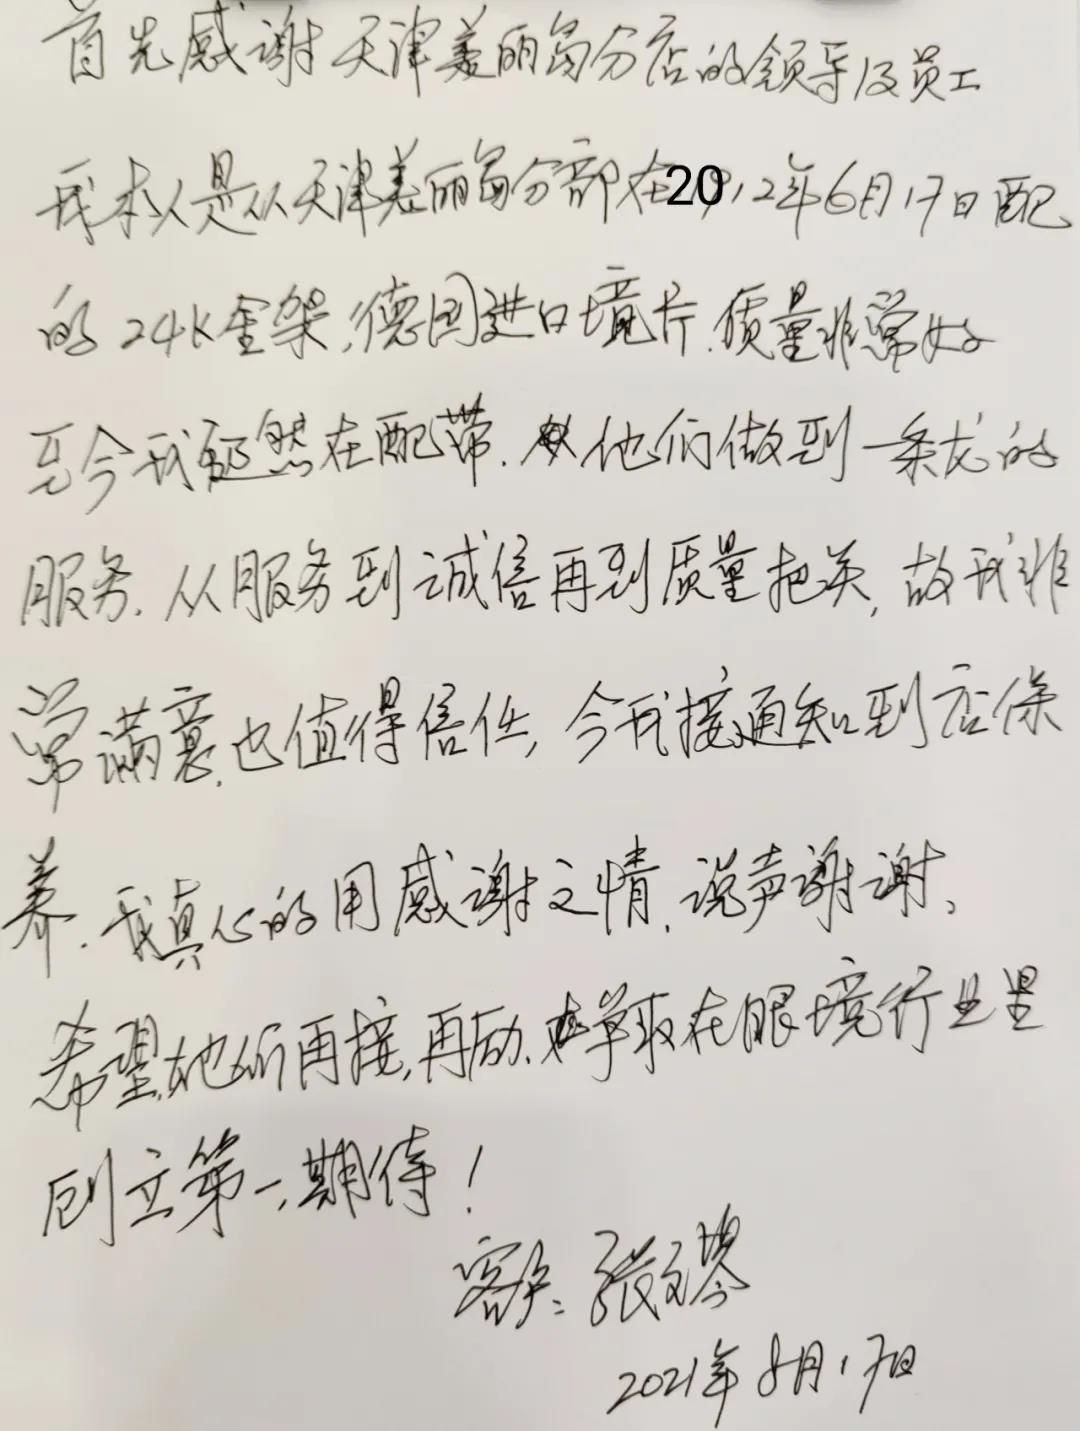 首先感谢天津美丽岛分店的领导及员工
我本人是从天津美丽岛分部在2012年6月17日配
的24K金架,德国进口境片.质量非常好
至今我仍然在配带.他们做到一条龙的
服务.从服务到诚信再到质量把关,故我非
常满意,也值得信任,今我接通知到店保
养.我真心的用感谢之情,说声谢谢、
希望他们再接,再励.争取在眼境行业里
创立第一,期待!
客户:张文琴
2021年8月17日